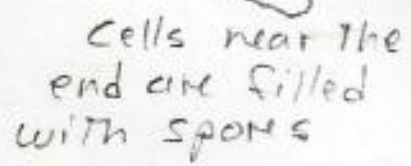 Cells near the
end are filled
with spores